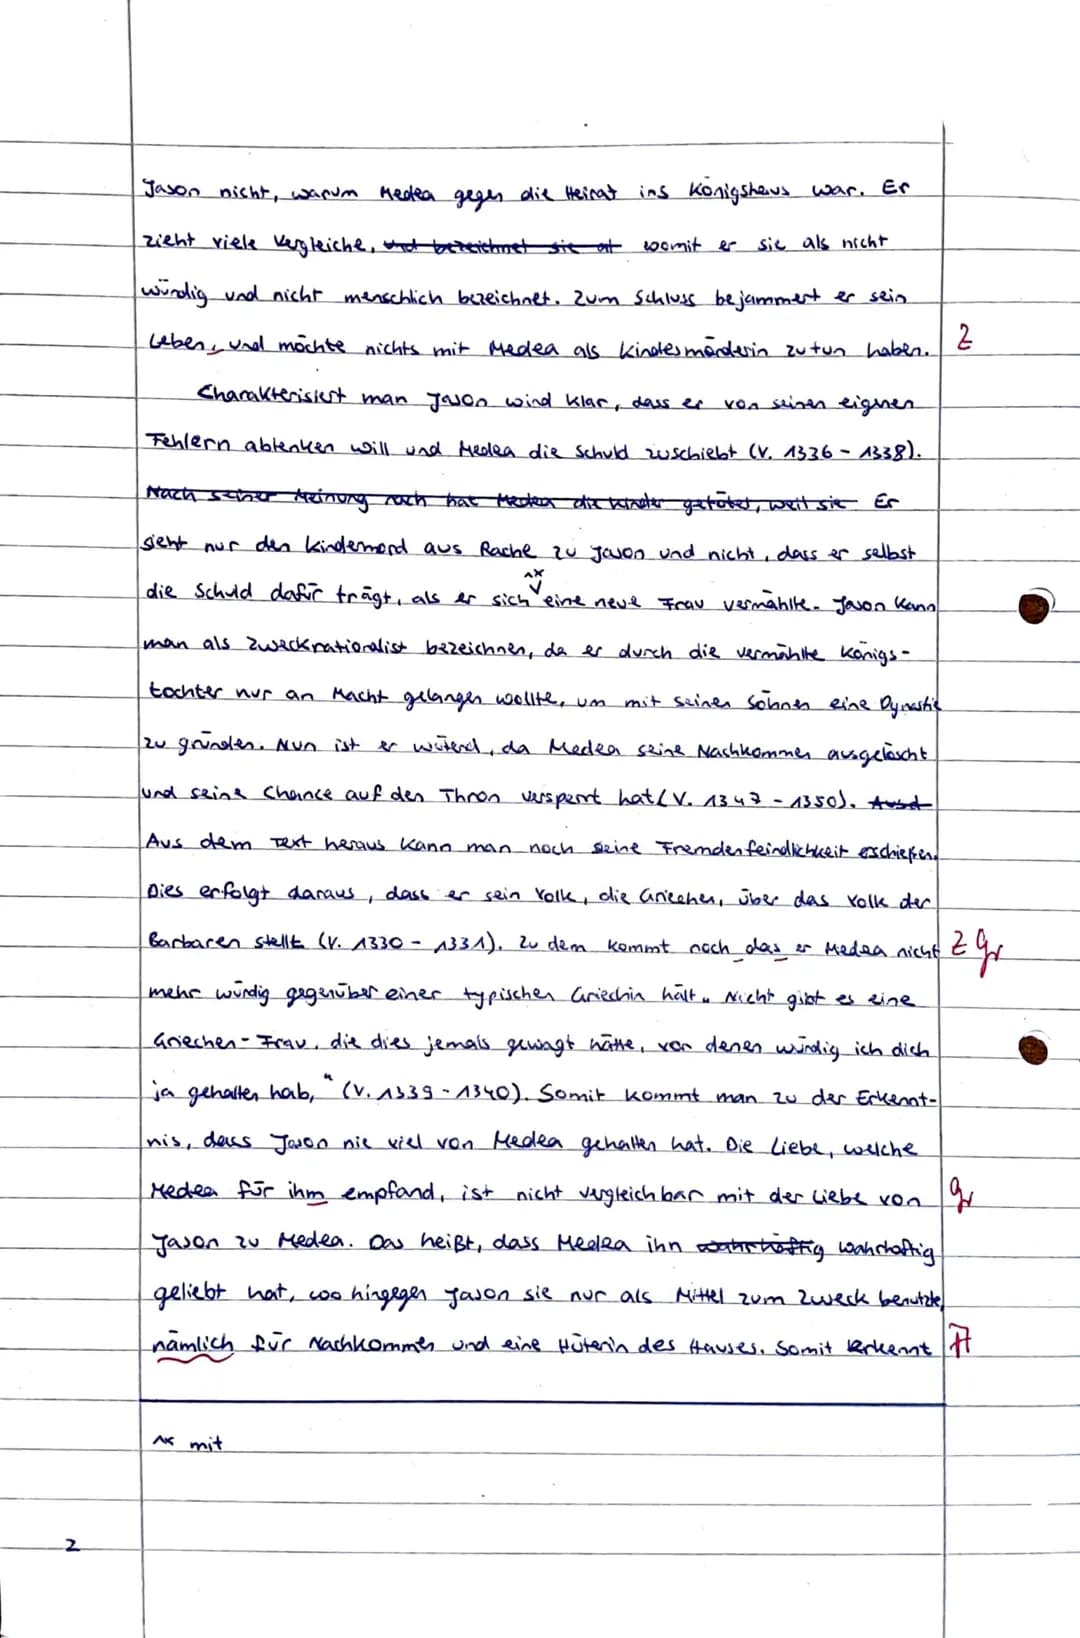 Jason nicht, warum Medea gegen die Heirat ins Königshaus war. Er
zieht viele Vergleiche, und bezeichnet sie al womit er sie als nicht
würdig und nicht menschlich bezeichnet. Zum Schluss bejammert er sein
Leben, und möchte nichts mit Medea als Kindesmörderin zu tun haben. Z
Charakterisiert man Jason wird klar, dass er von seinen eigenen
Fehlern ablenken will und Medea die Schuld zuschiebt (V. 1336 - 1338).
Nach seiner Meinung nach hat Medea die Kinder getötet, weil sie Er
sieht nur den Kindermord aus Rache zu Jason und nicht, dass er selbst
die Schuld dafür trägt, als er sich eine neue Frau vermählte. Jason kann
man als Zweckrationalist bezeichnen, da er durch die vermählte Königs-
tochter nur an Macht gelangen wollte, um mit seinen Söhnen eine Dynastie
zu gründen. Nun ist er wütend, da Medea seine Nachkommen ausgelöscht
und seine Chance auf den Thron versperrt hat (V. 1347 - 1350).
Aus dem Text heraus kann man noch seine Fremdenfeindlichkeit erschießen.
Dies erfolgt daraus, dass er sein Volk, die Griechen, über das Volk der
Barbaren stellt (V. 1330 - 1331). Zu dem kommt noch das er Medea nicht Z gr
mehr würdig gegenüber einer typischen Griechin hält „ Nicht gibt es eine
Griechen-Frau, die dies jemals gewagt hätte, von denen würdig ich dich
ja gehalten hab, " (V. 1339 - 1340). Somit kommt man zu der Erkennt-
nis, dass Jason nie viel von Medea gehalten hat. Die Liebe, welche
Medea für ihm empfand, ist nicht vergleichbar mit der Liebe von gr
Jason zu Medea. Das heißt, dass Medea ihn wahrhaftig wahrhaftig
geliebt hat, wo hingegen Jason sie nur als Mittel zum Zweck benutzte,
nämlich für Nachkommen und eine Hüterin des Hauses. Somit erkennt A
^x mit
2